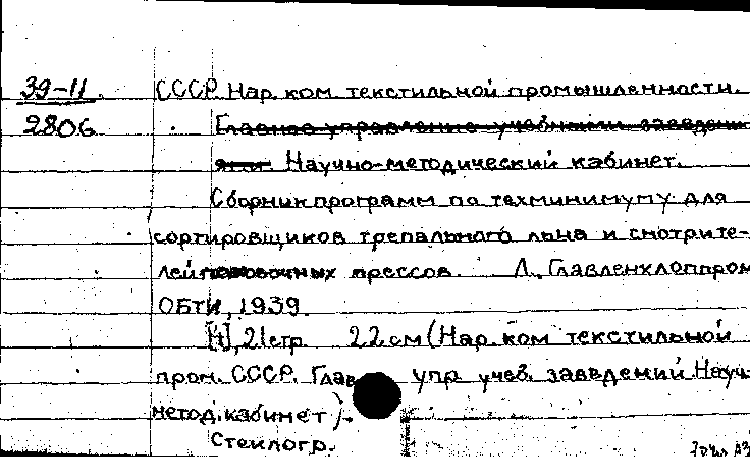 39-11 СССР Нар. ком. текстильной промышленности.
2806 Главное управление учебными заведени
ями. Научно-методический кабинет.
Сборник программ по техминимуму для
сортировщиков трепального льна и смотрите-
лей паковочных прессов. Л., Главленхлоппром
ОБТИ, 1939.
[1], 21 стр. 22 см (Нар. ком текстильной
пром. СССР. Глав упр учеб. заведений. Науч.
метод. кабинет).
Стеклогр.